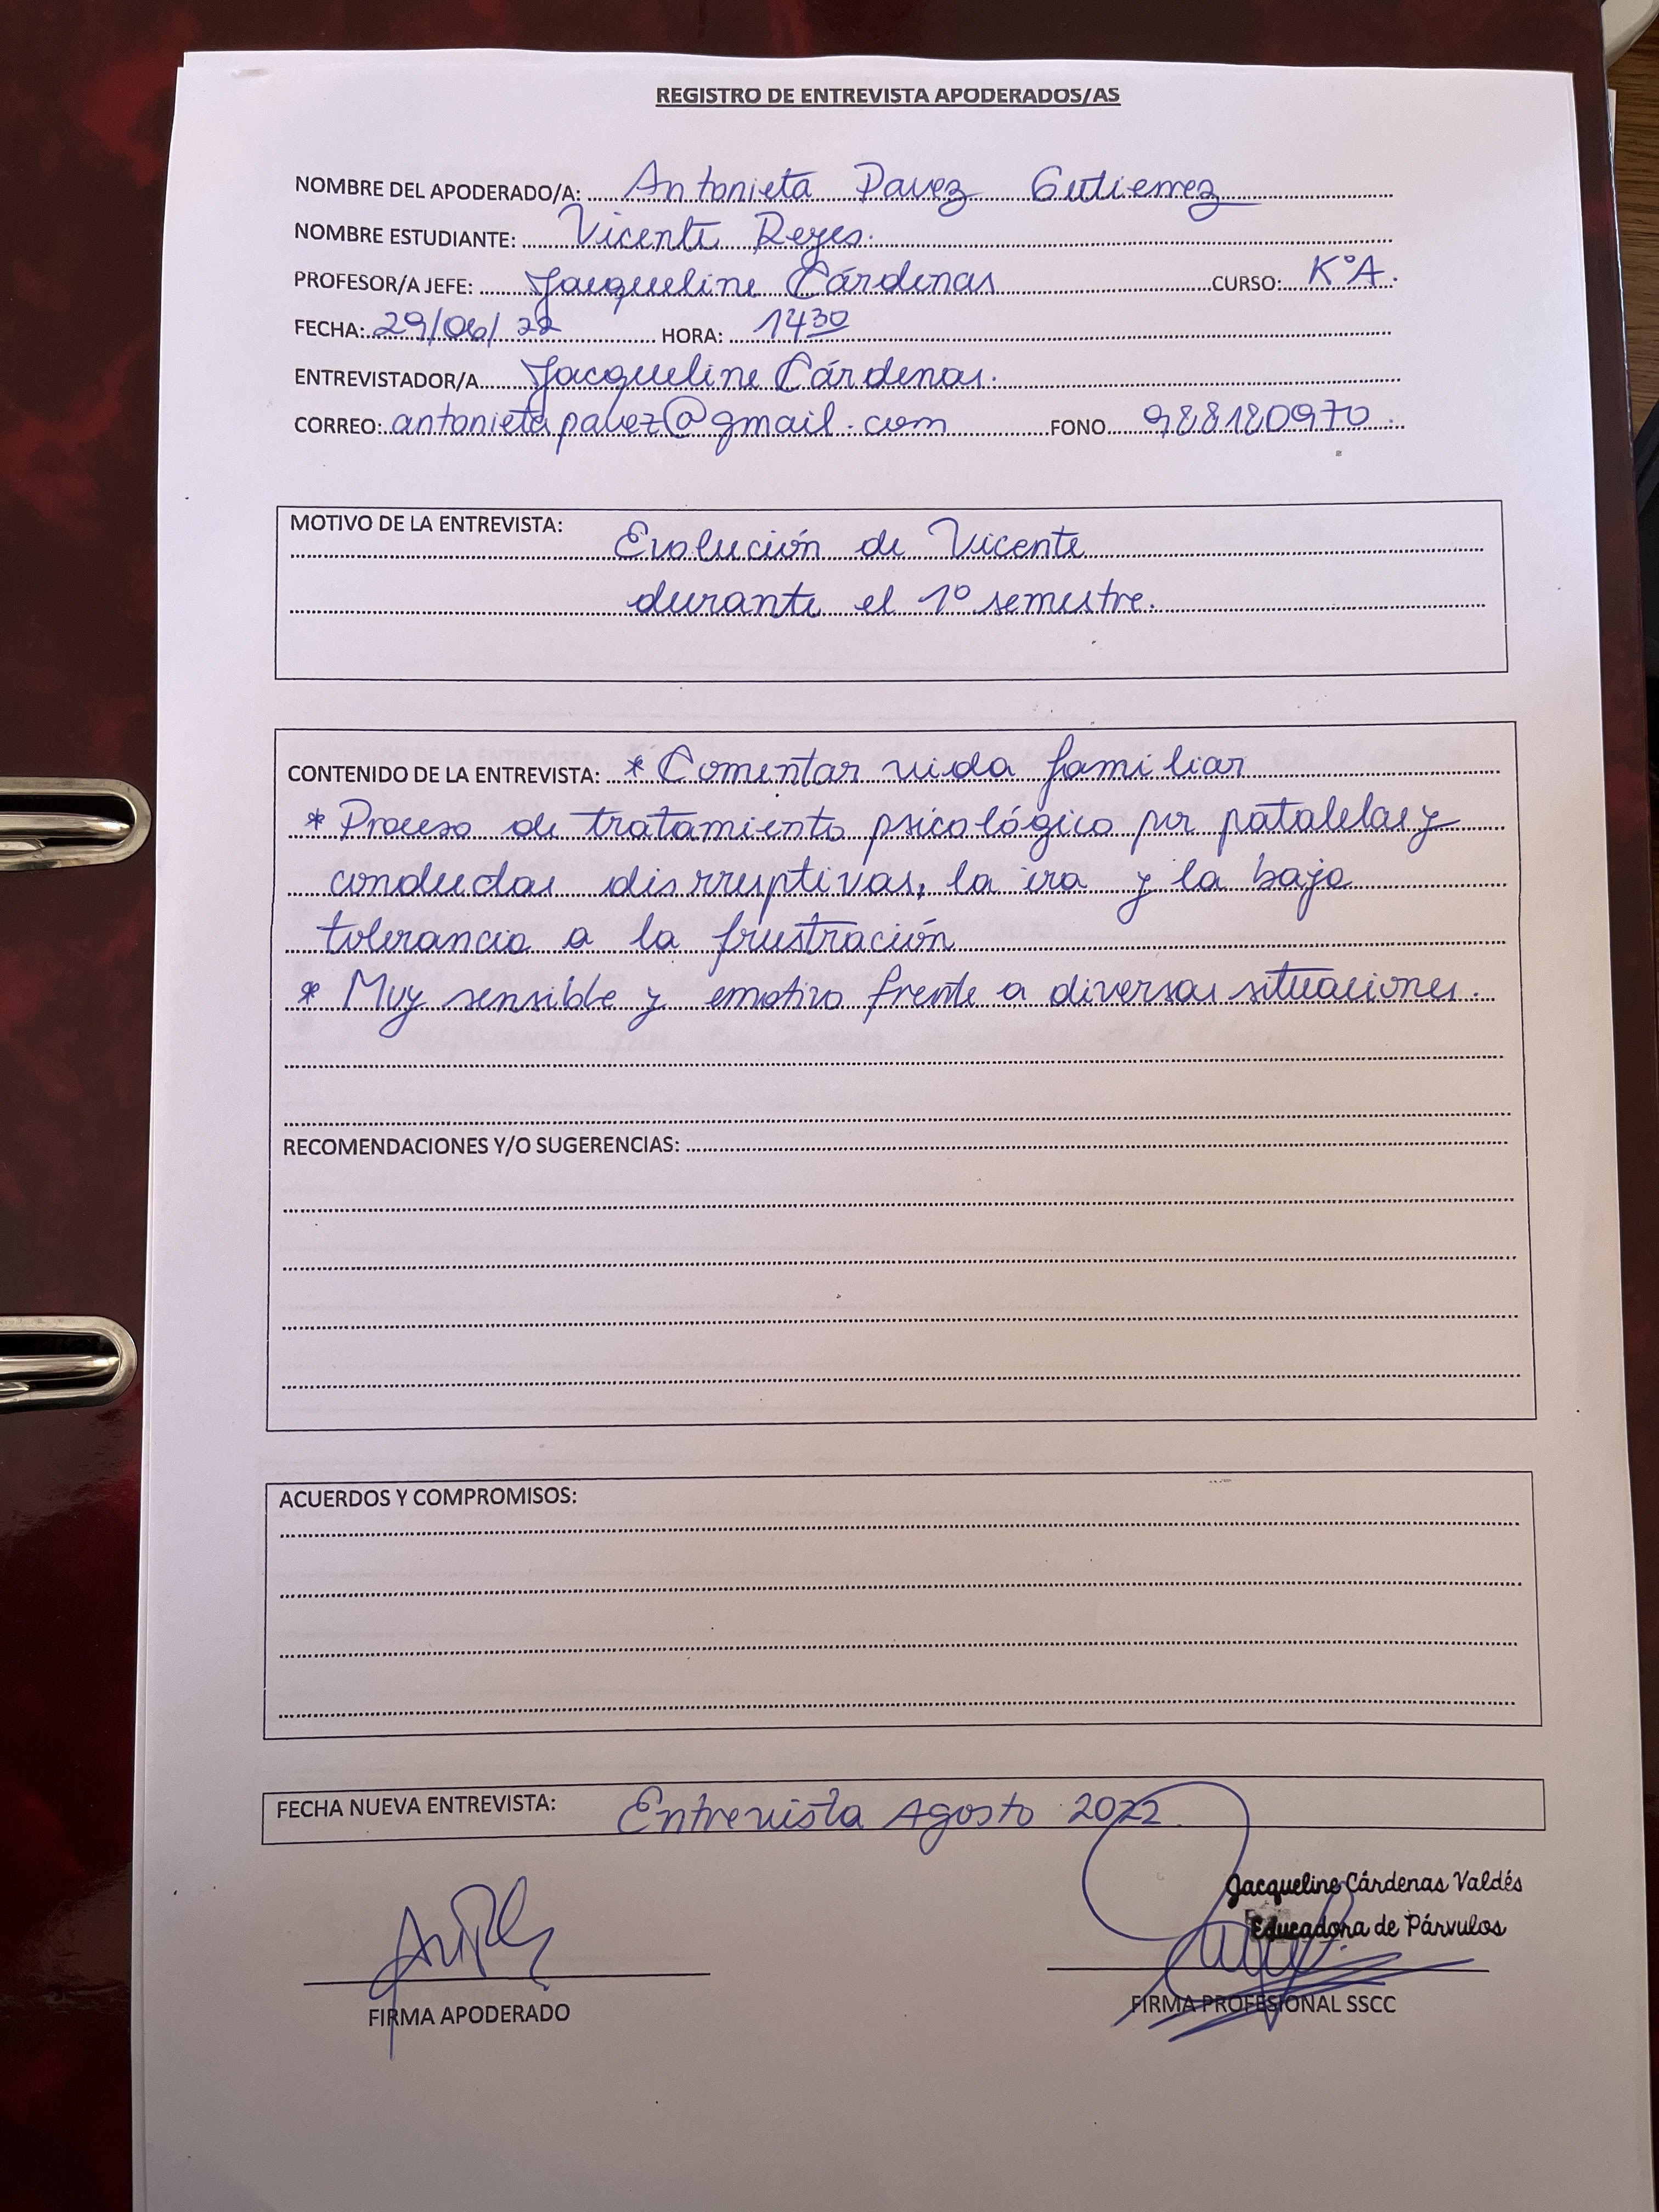 REGISTRO DE ENTREVISTA APODERADOS/AS
NOMBRE DEL APODERADO/A: Antonieta Pavez Gutierrez
NOMBRE ESTUDIANTE: Vicente Reyes.
PROFESOR/A JEFE: Jacqueline Cárdenas CURSO: K°A.
FECHA: 29/06/22 HORA: 14 30
ENTREVISTADOR/A Jacqueline Cárdenas.
CORREO: antonietapavez@gmail.com FONO 988180970.
MOTIVO DE LA ENTREVISTA: Evolución de Vicente
durante el 1º semestre.
CONTENIDO DE LA ENTREVISTA: * Comentar vida familiar
* Proceso de tratamiento psicológico por pataletas y
conductas disrruptivas, la ira y la baja
tolerancia a la frustración
* Muy sensible y emotivo frente a diversas situaciones.
RECOMENDACIONES Y/O SUGERENCIAS:
ACUERDOS Y COMPROMISOS:
FECHA NUEVA ENTREVISTA: Entrevista Agosto 2022
Jacqueline Cárdenas Valdés
Educadora de Párvulos
FIRMA APODERADO FIRMA PROFESIONAL SSCC